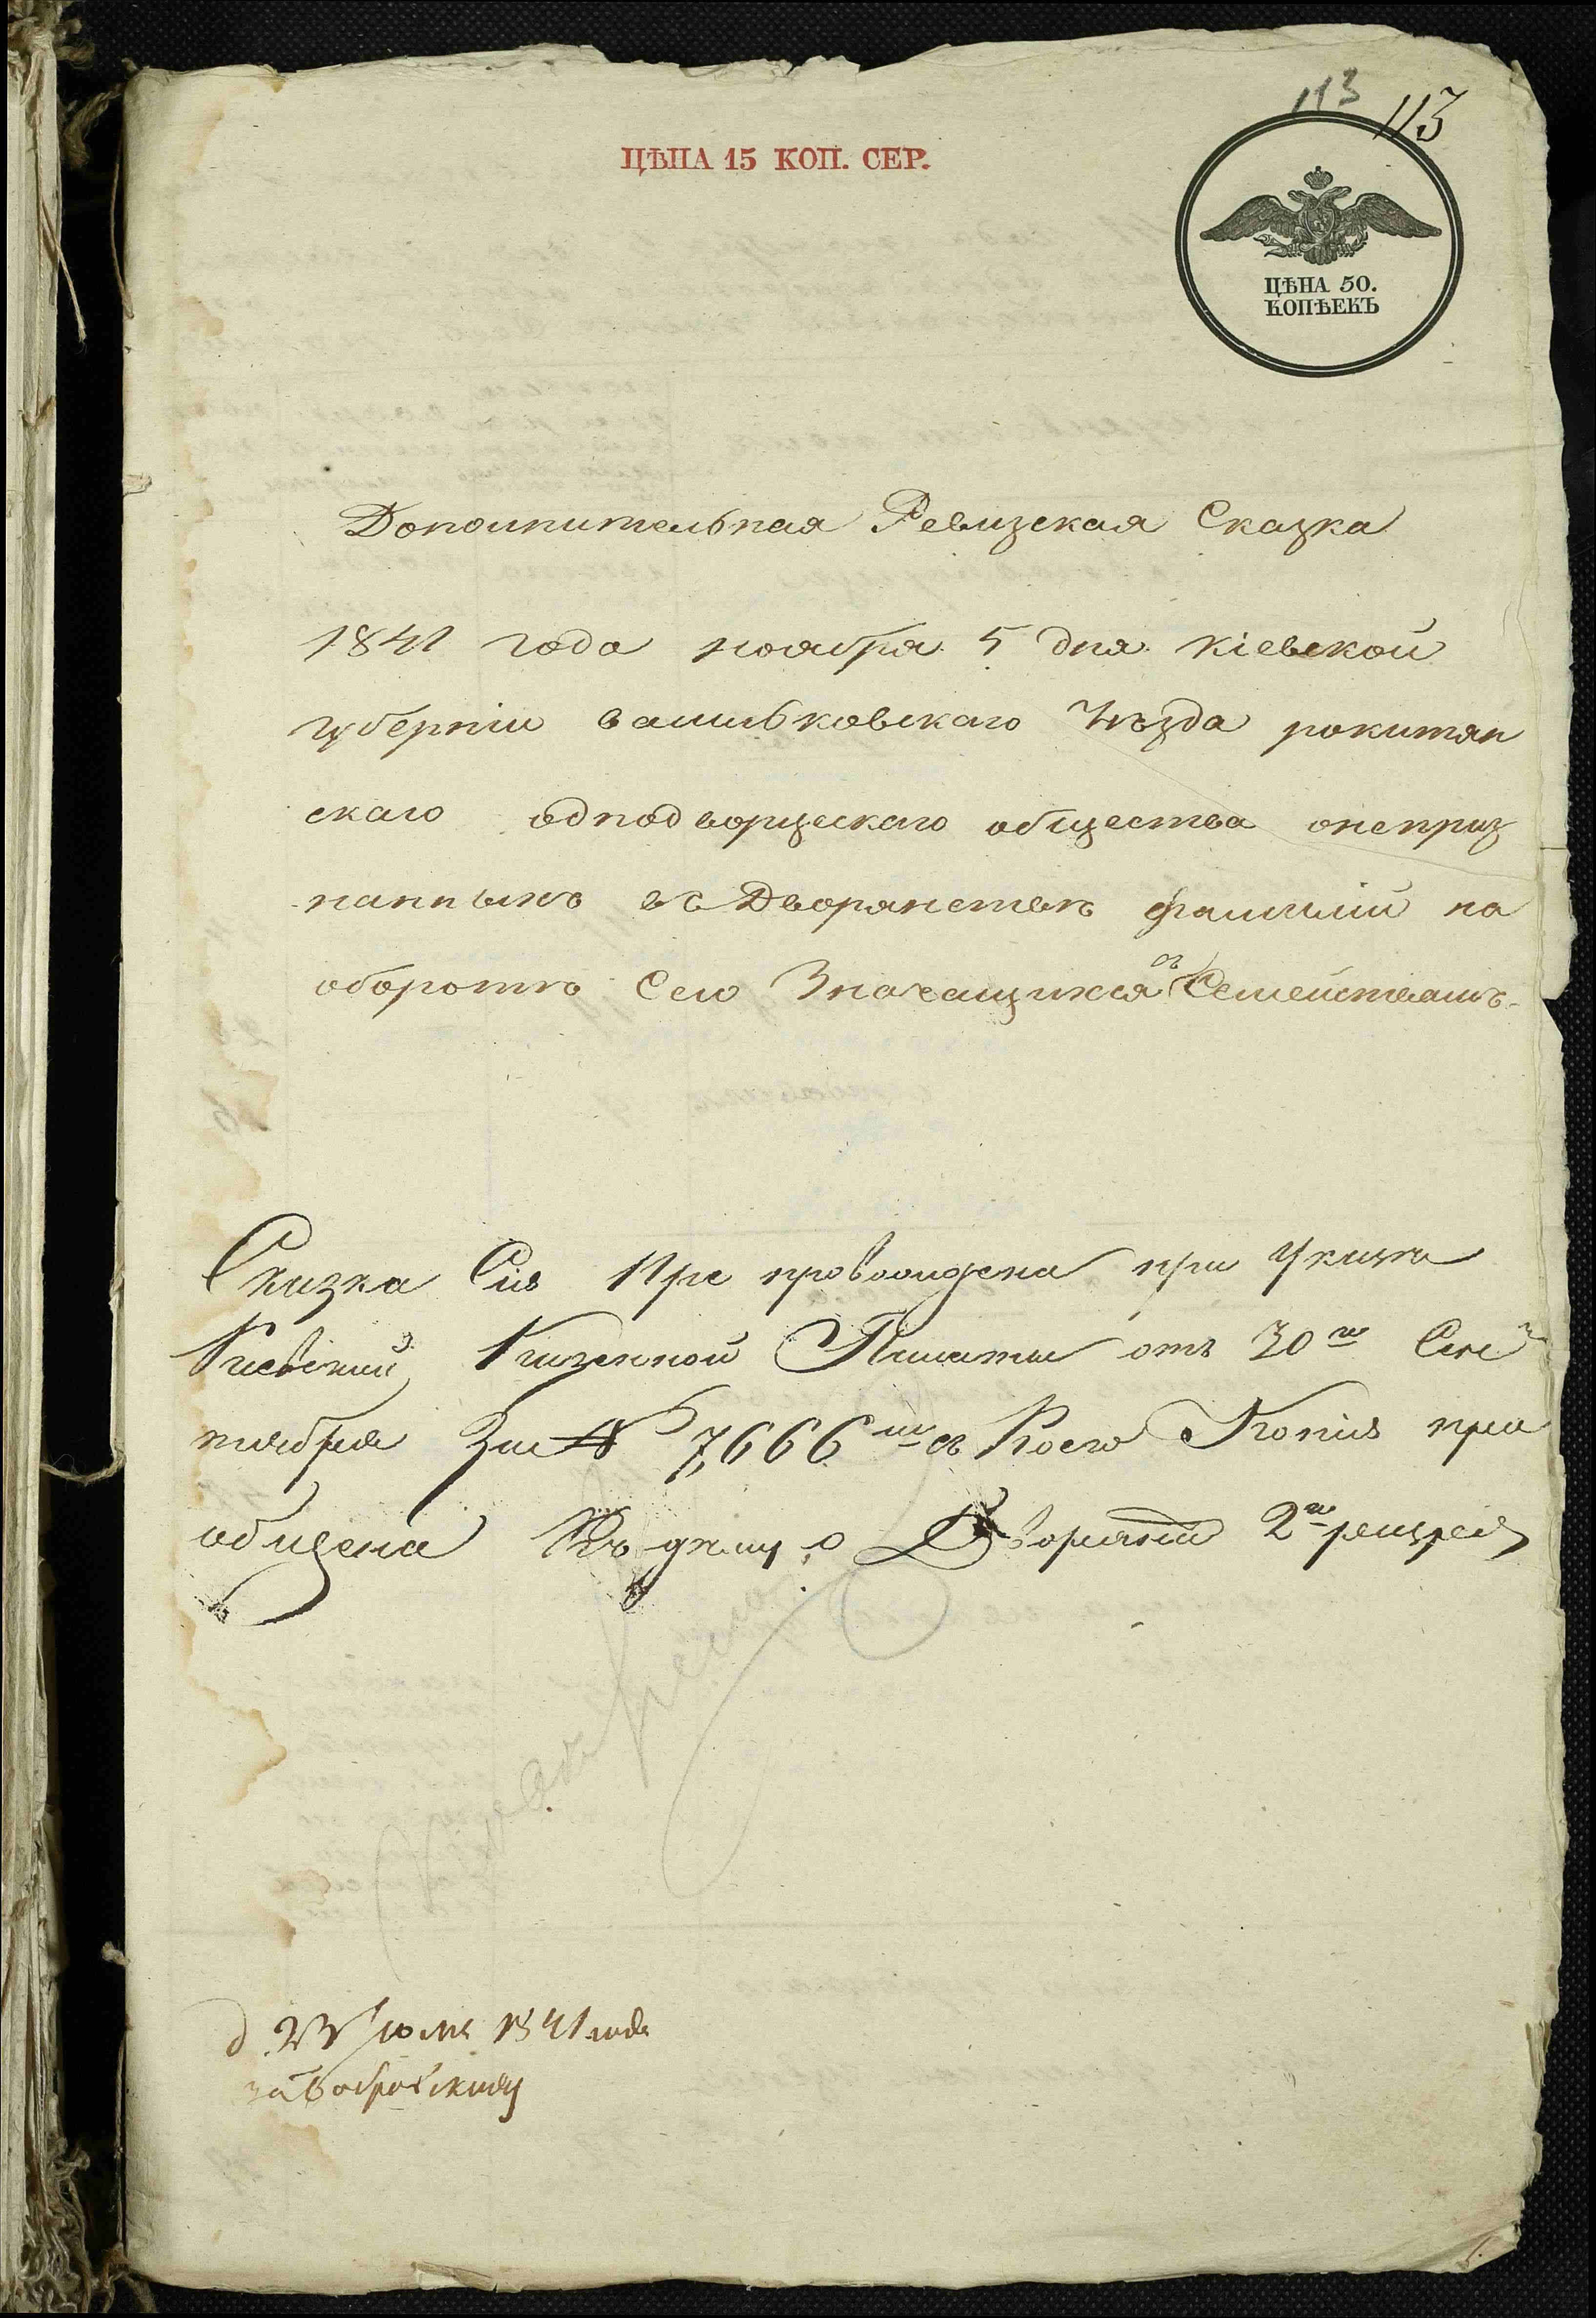 113 113
ЦѢНА 15 КОП. СЕР.
ЦѢНА 50.
КОПѢЕКЪ
Дополнительная Ревизская Сказка
1841 года ноября 5 дня Кіевской
губерніи васильковскаго Уѣзда рокитян
скаго однодворческаго общества онеприз
нанныхъ въ Дворянствѣ фамиліи на
оборотѣ Сего Значащихся съ Семействамъ
Сказка Сія Пре провождена при Указѣ
Кіевской Казенной Палаты отъ 30го Сен
тября За № 7,666 мъ съ Коего Копія прі
общена Къ дѣлу о Дворянъ 2го разряда
Іюля 1841 года